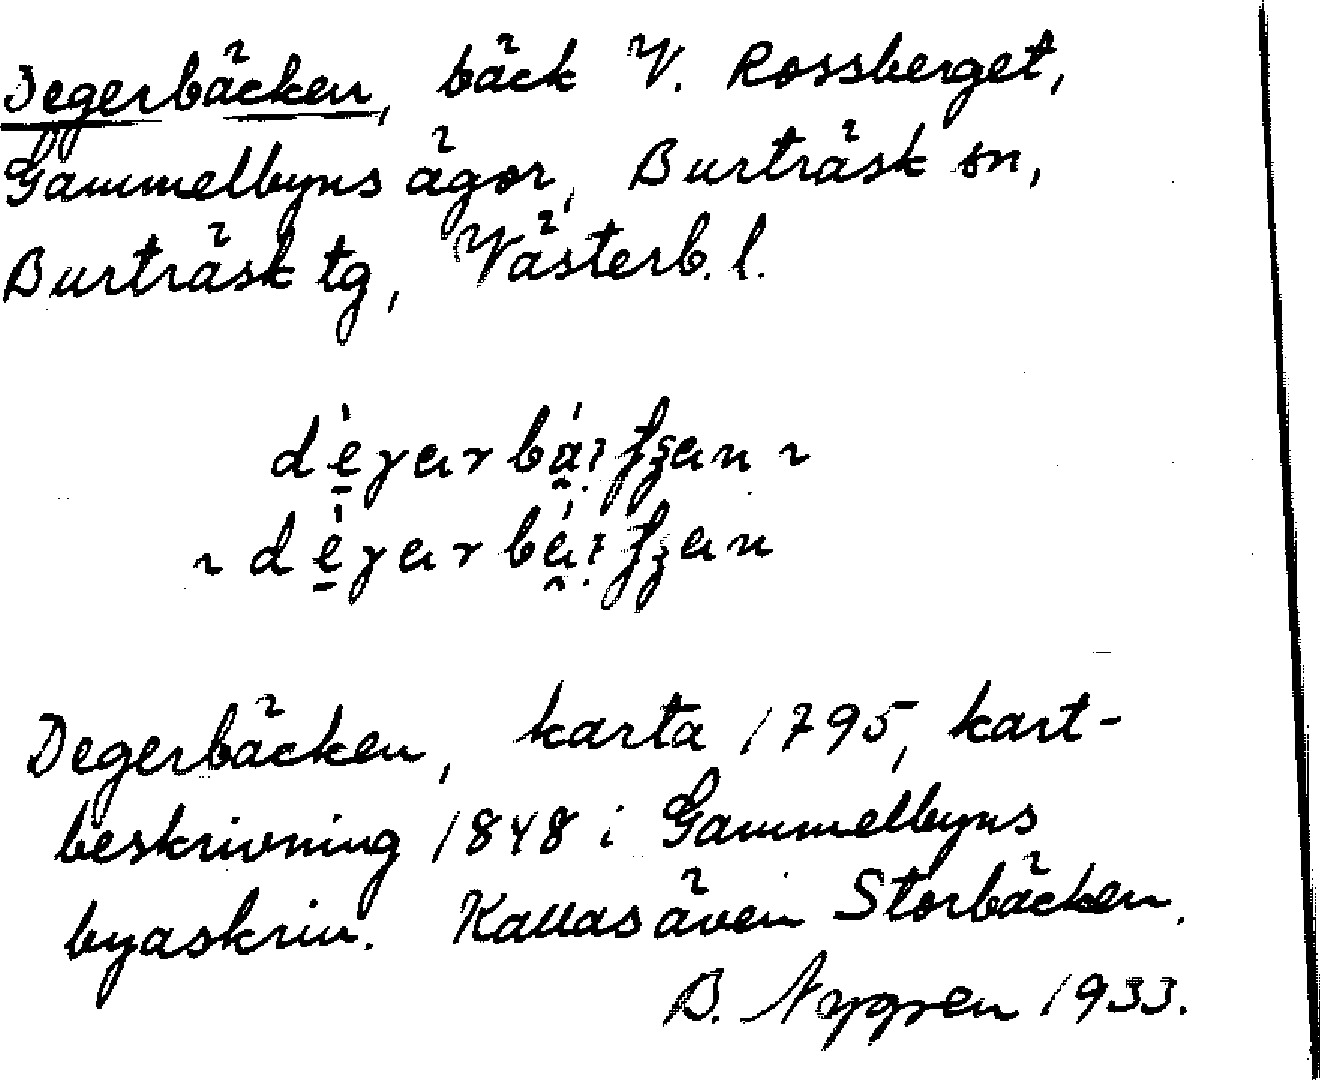 Degerbäcken, bäck V. Rossberget,
Gammelbyns ägor, Burträsk sn,
Burträsk tg, Västerb. l.
Degerbäcken, karta 1795, kart-
beskrivning 1848 i Gammelbyns
byaskrin. Kallas även Storbäcken.
B. Nygren 1933.